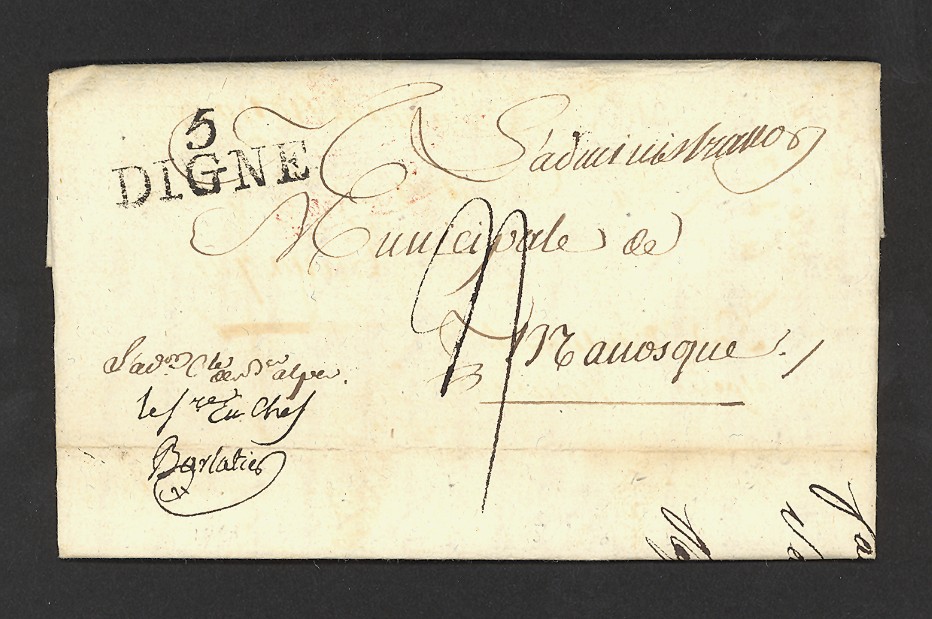 5
DIGNE
L'administration
Municipale de
Manosque
L'adon Cle
des Ses alpes.
le Sre En Chef
Barlatier